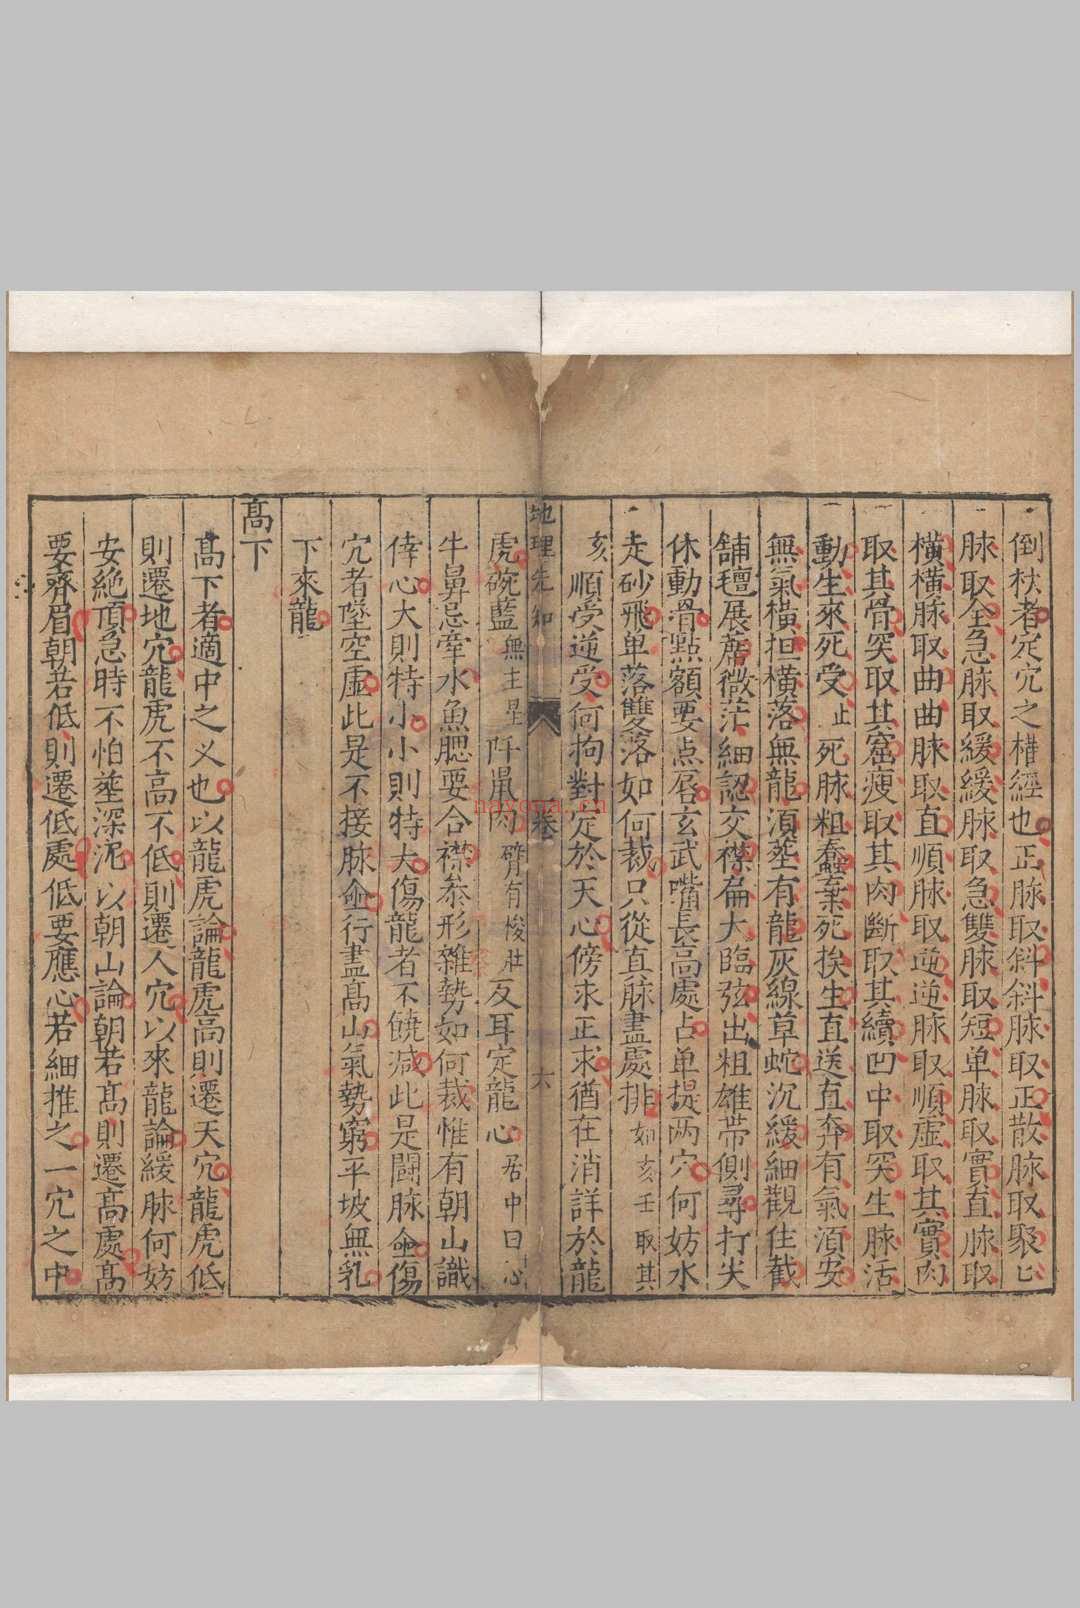 倒杖者定穴之楷經也正脉取斜斜脉取正散脉取聚匕
脉取全急脉取緩緩脉取急雙脉取短单脉取實直脉取
橫橫脉取曲曲脉取直順脉取逆逆脉取順虛取其實肉
取其骨突取其窟瘦取其肉斷取其續凹中取突生脉活
動生來死受止死脉粗蠢棄死挨生直送直奔有氣湏安
無氣橫担橫落無龍湏塟有龍灰線草蛇沉緩細觀住截
舖氊展蓆微茫細認交襟扁大臨弦出粗雄带側尋打尖
休動骨點額要点唇玄武嘴長高處占单提两穴何妨水
走砂飛单落雙落如何裁只從真脉盡處排如亥壬取其
亥順受逆受何拘對定於天心傍求正求猶在消詳於龍
地理先知
卷
六
虎碗藍無主星阡鼠肉臂有梭肚反耳定龍心居中曰心
牛鼻忌牽水魚腮要合襟叅形雜勢如何裁惟有朝山識
倖心大則特小小則特大傷龍者不饒減此是闘脉侖傷
穴者墜空虛此是不接脉侖行盡髙山氣勢窮平坡無乳
下來龍
髙下
髙下者適中之义也以龍虎論龍虎高則遷天穴龍虎低
則遷地穴龍虎不高不低則遷人穴以來龍論緩脉何妨
安絶頂急時不怕塟深泥以朝山論朝若髙則遷髙處髙
要齊眉朝若低則遷低處低要應心若細推之一穴之中
nayona.cn